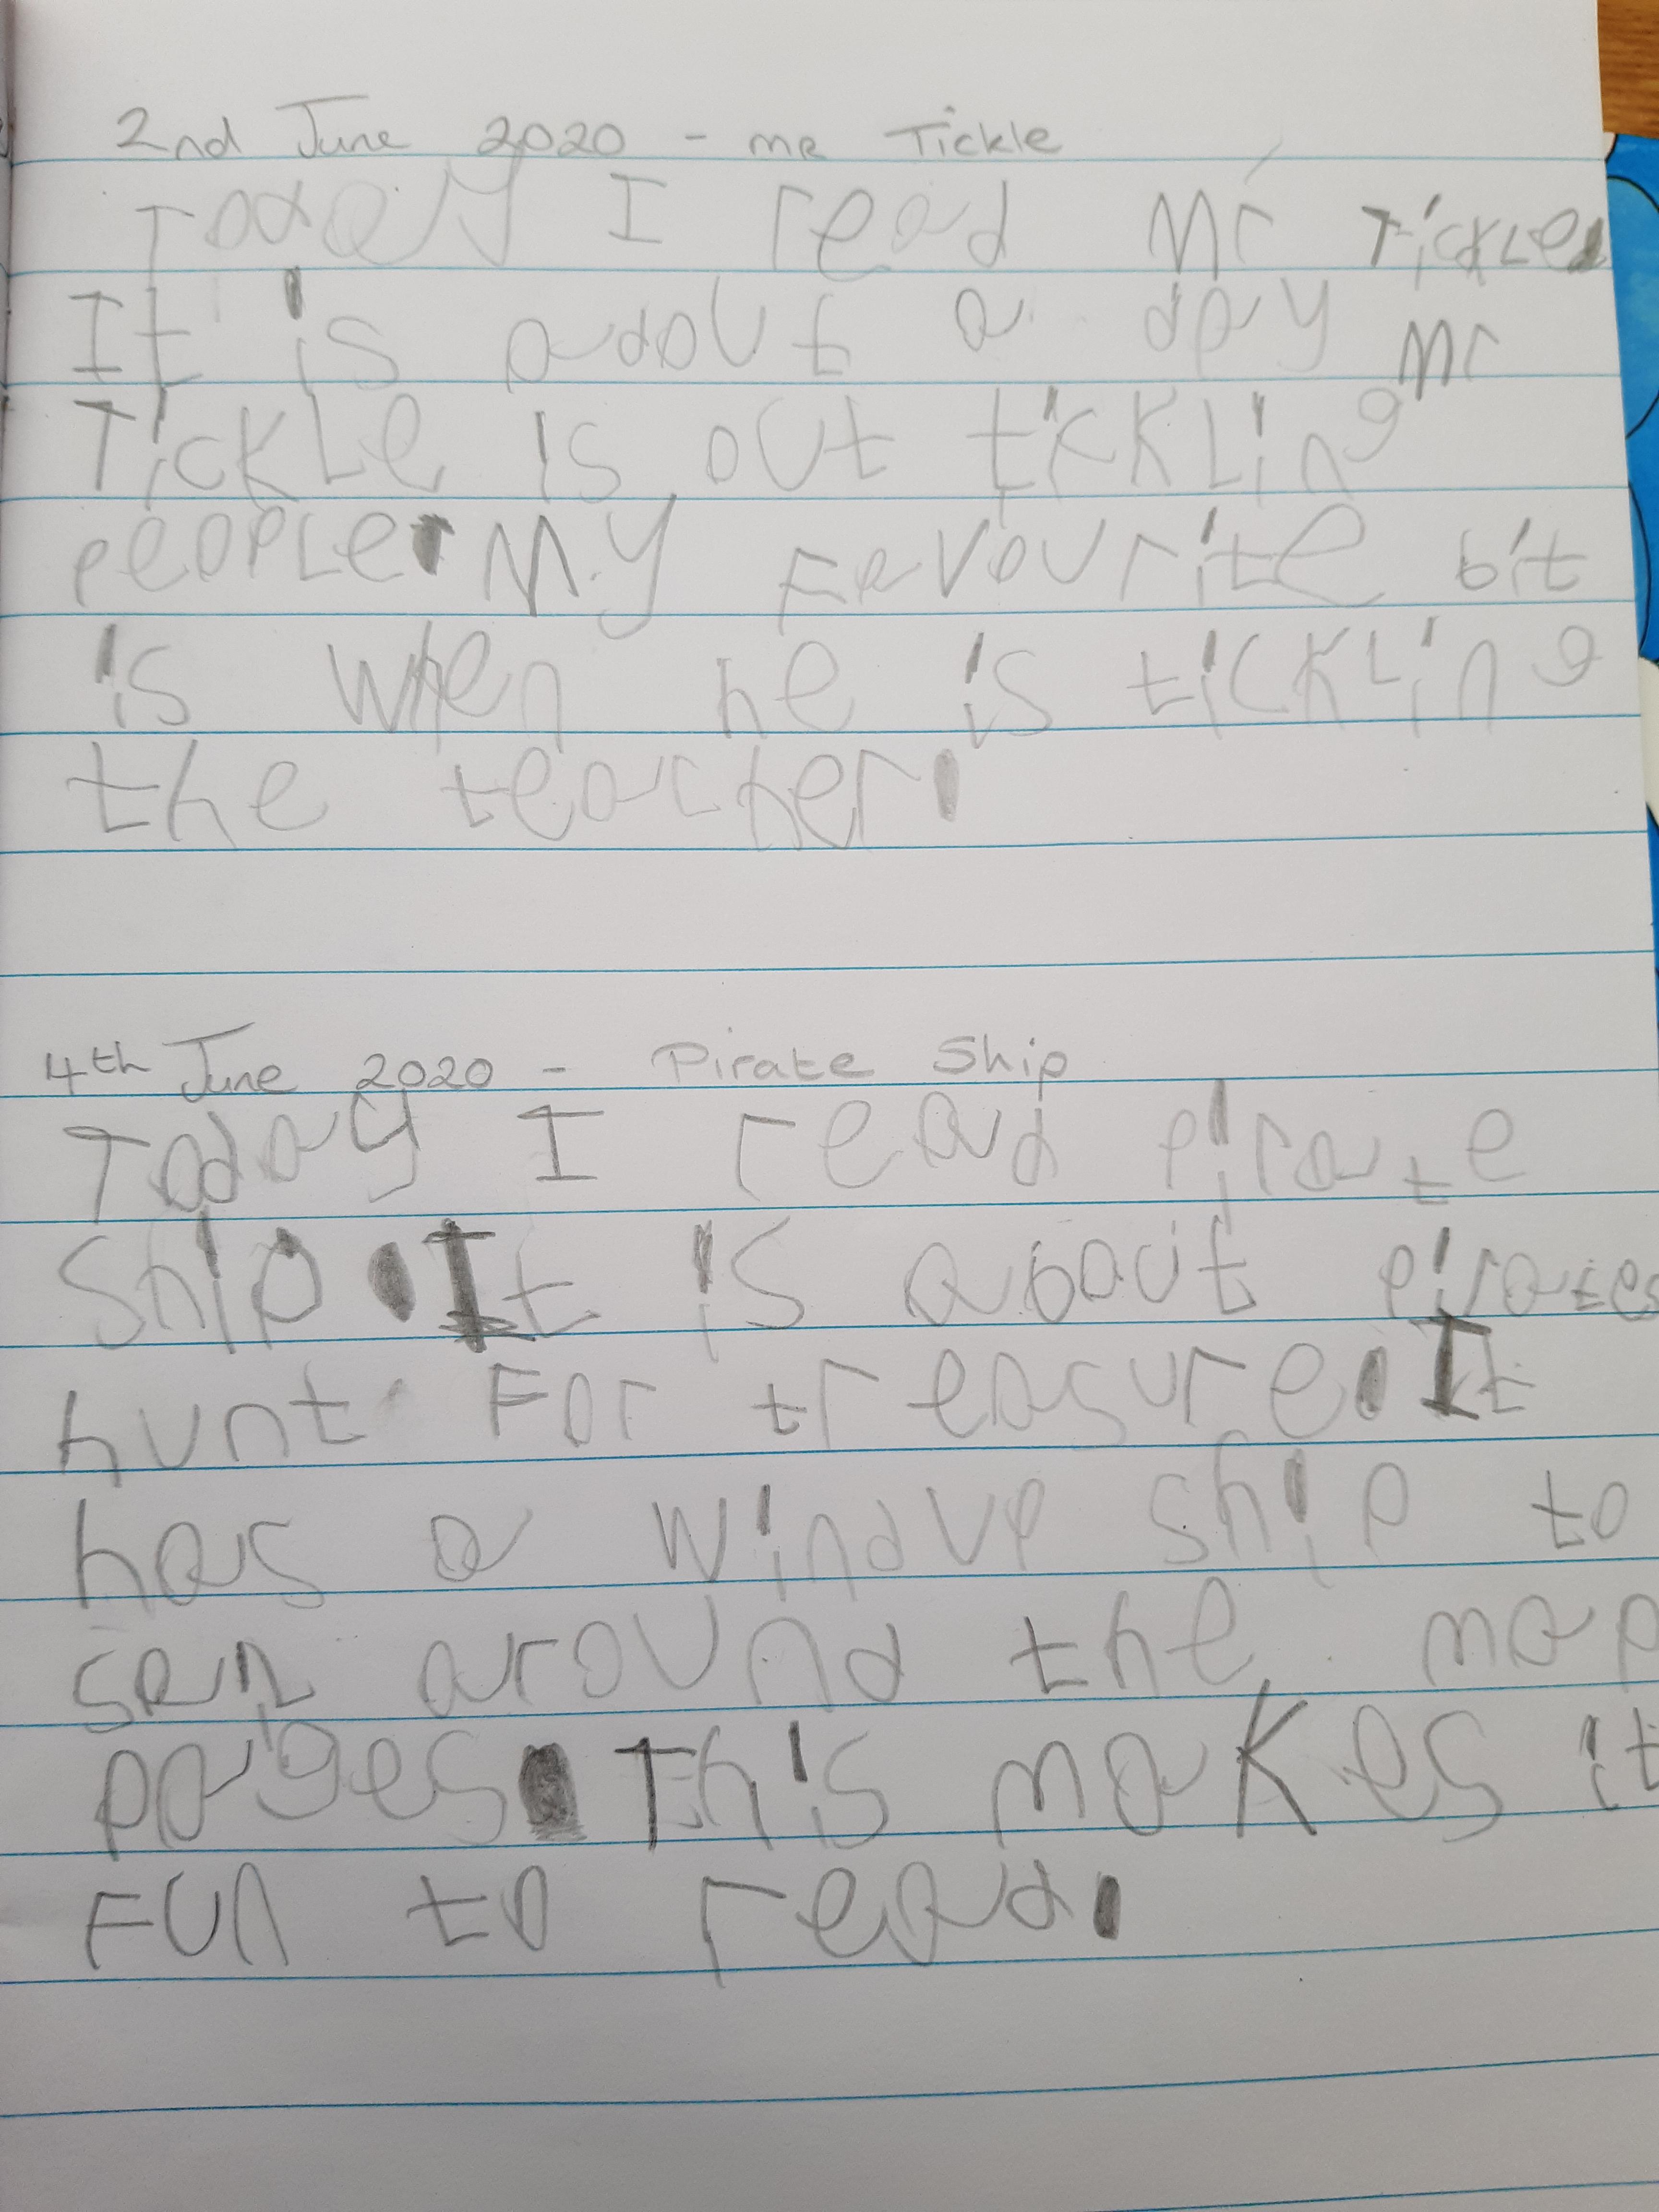 2nd June 2020 - mr Tickle
Today I read Mr Tickle.
It is adout a day Mr
Tickle is out tickling
people. My favourite bit
is when he is tickling
the teacher.
4th June 2020 - Pirate Ship
Today I read pirate
Ship. It is about pirates
hunt for treasure. It
has a windup ship to
sail around the map
pages. This makes it
fun to read.